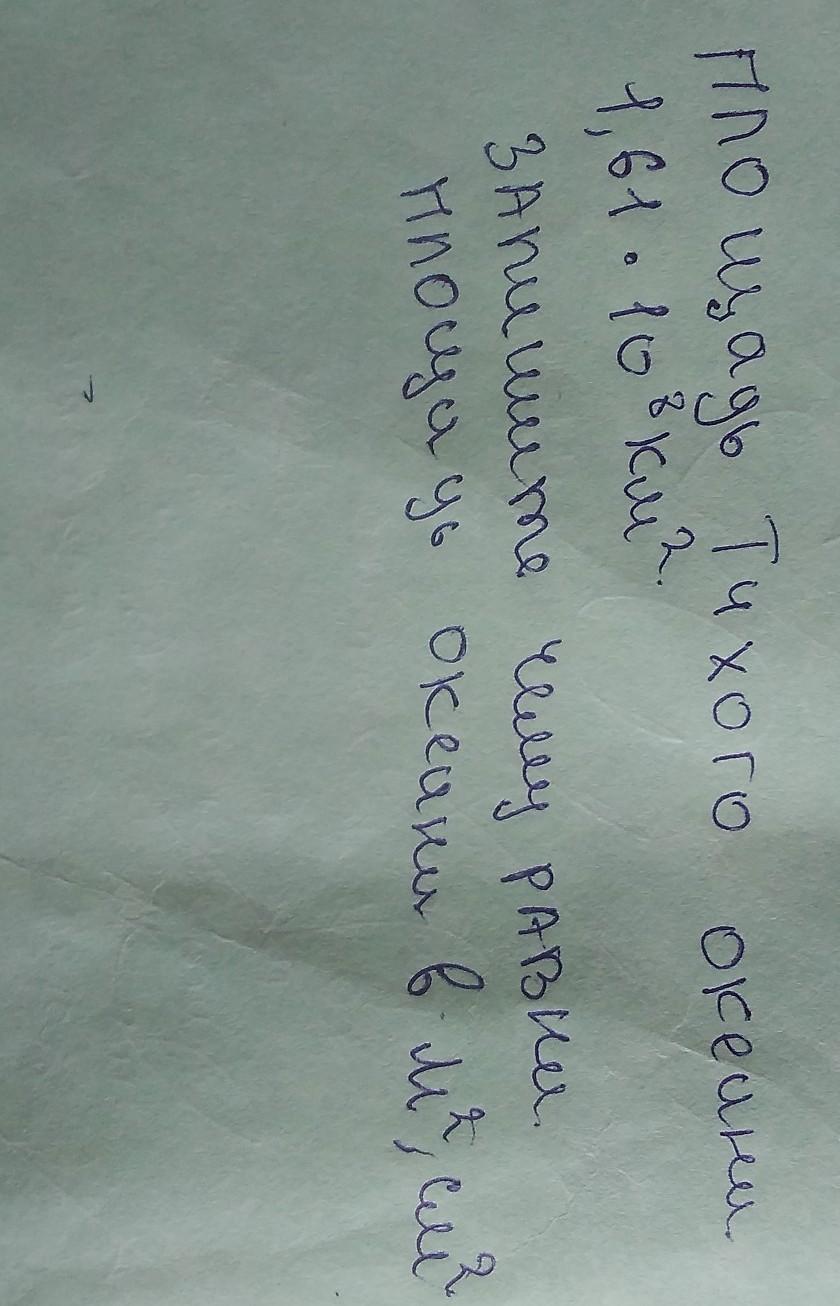 Площадь Тихого океана
1,61 · 10⁸ км².
Запишите чему равна
площадь океана в м², см²